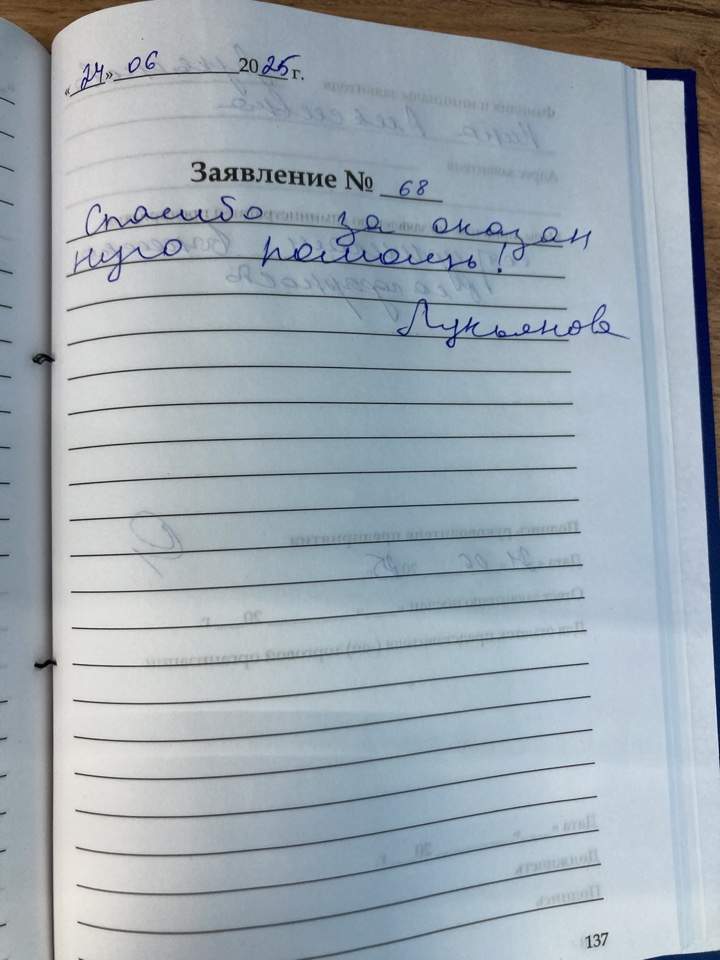 «24» 06 2025 г.
Заявление № 68
Спасибо за оказан
ную помощь!
Лукьянова
137